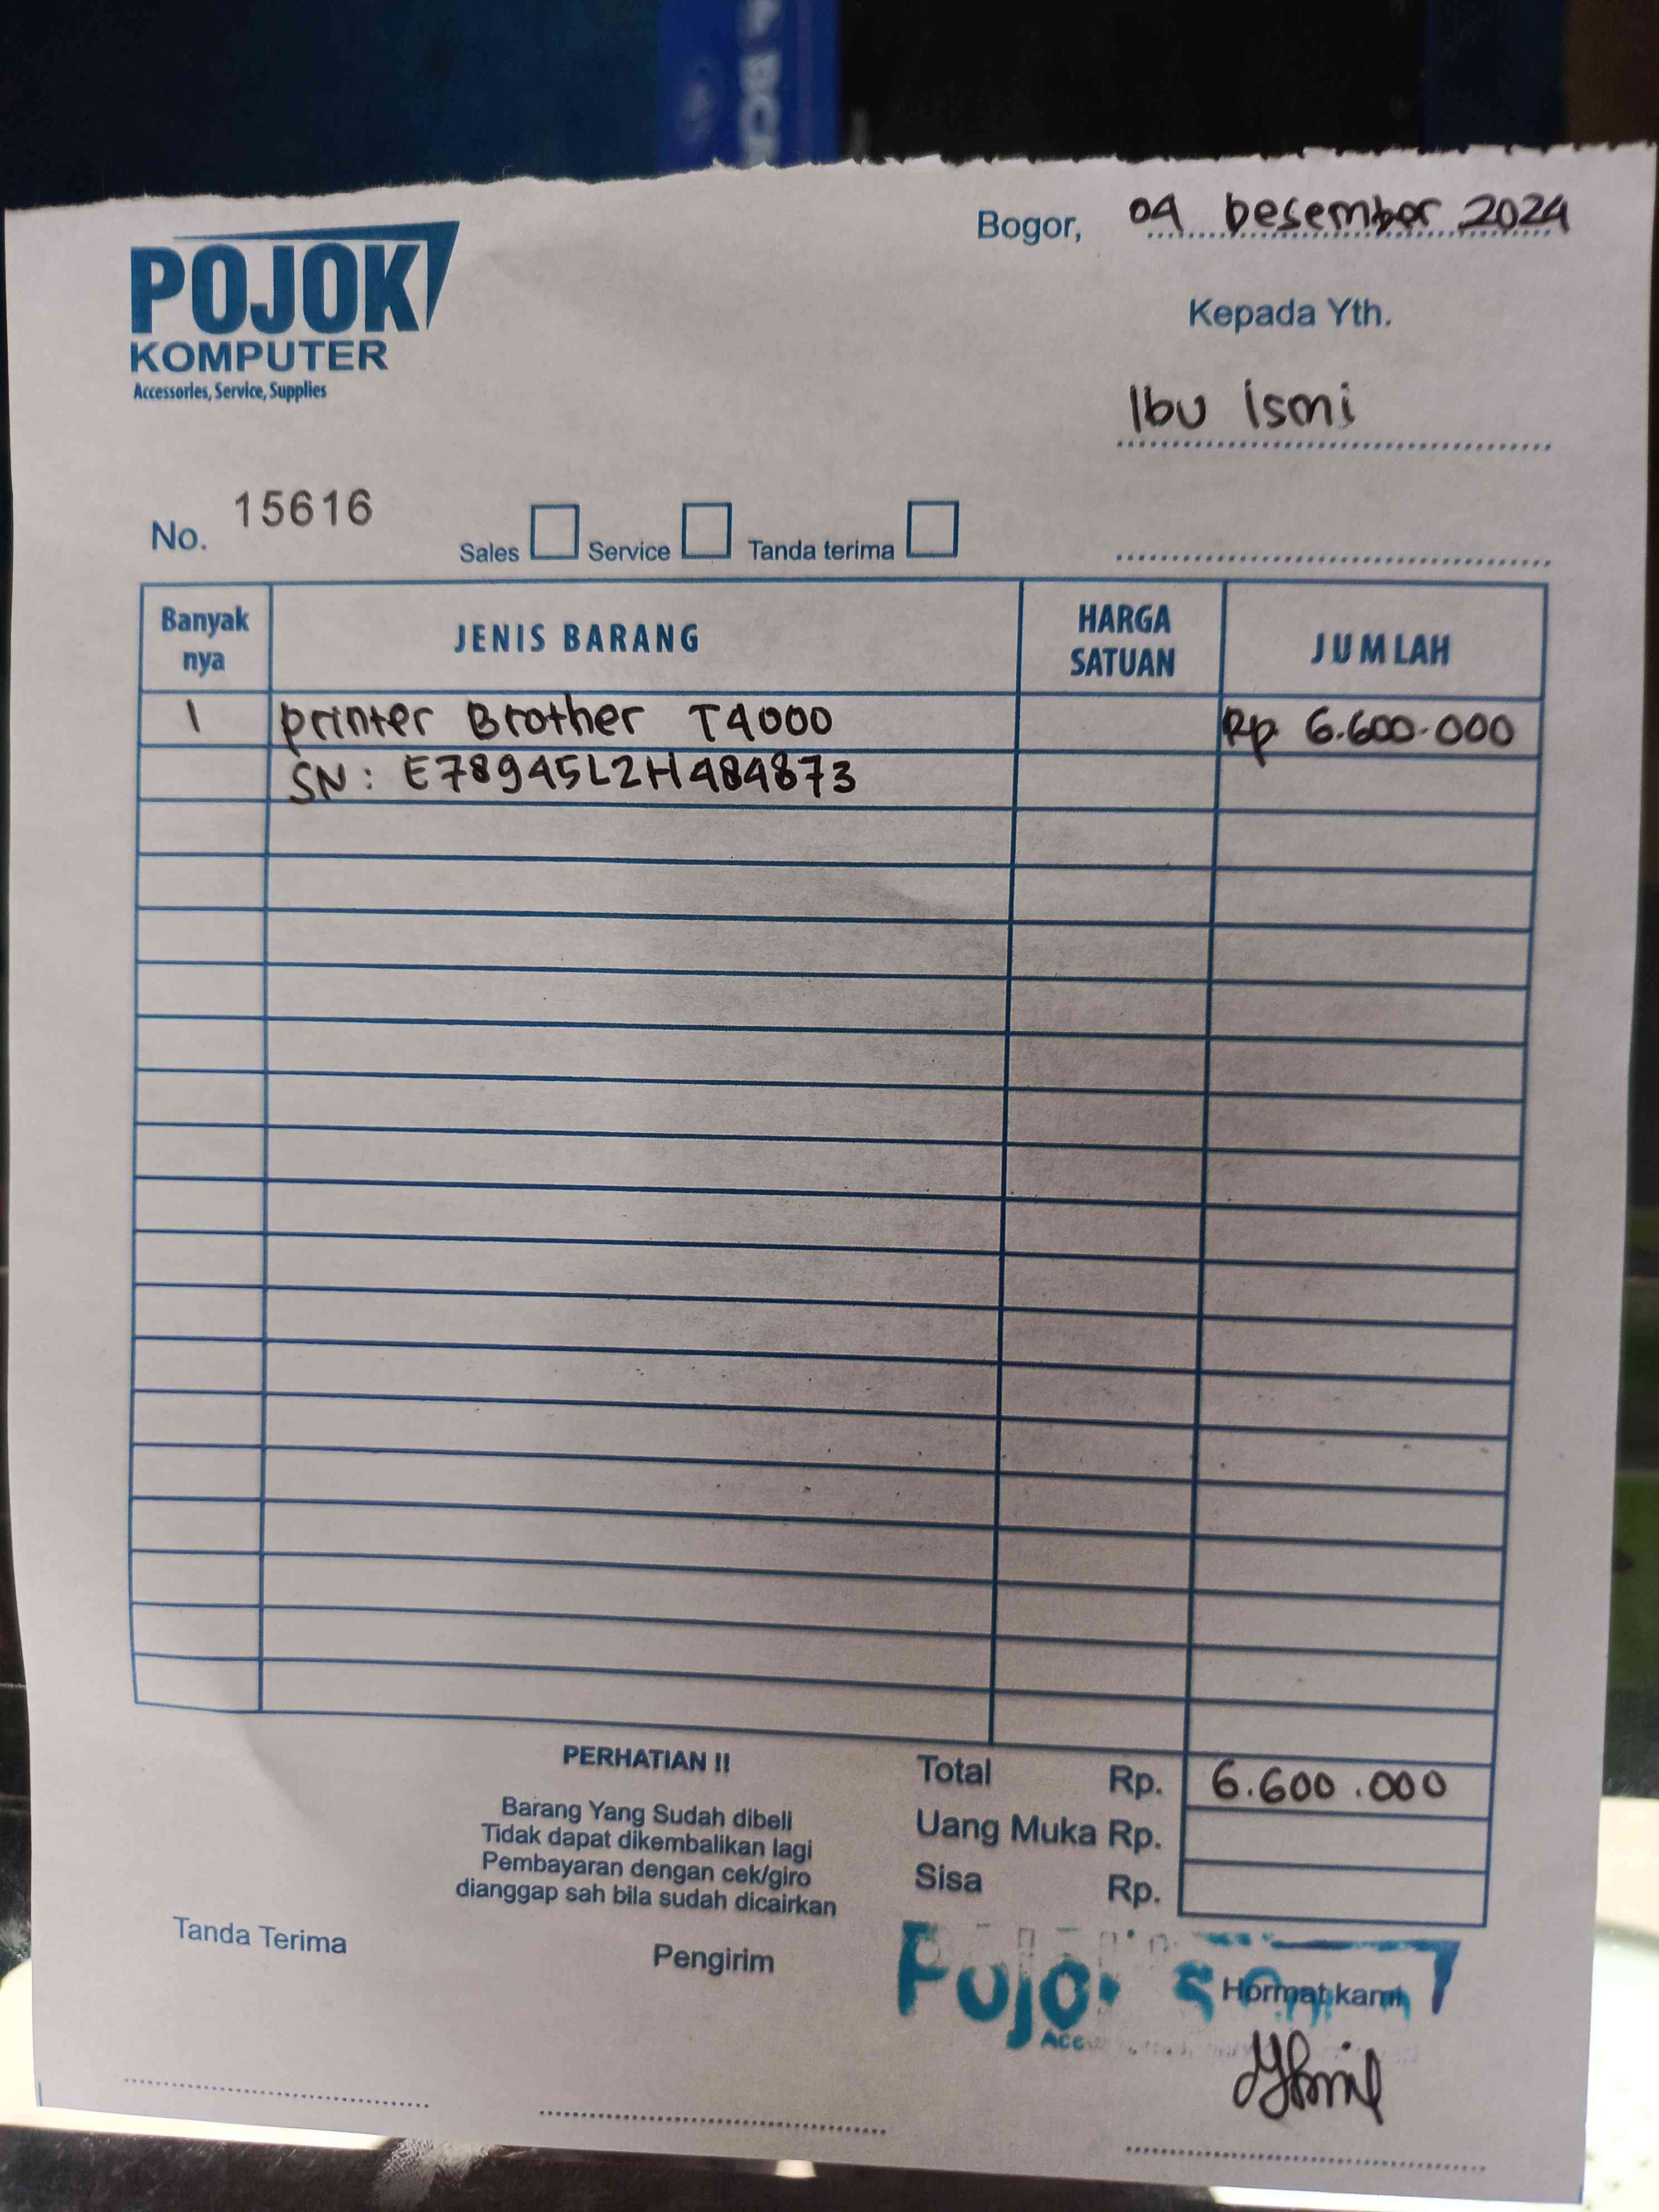 BCA
Bogor, 04 Desember 2024
POJOK
KOMPUTER
Accessories, Service, Supplies
Kepada Yth.
Ibu Ismi
No. 15616
Sales Service Tanda terima
Banyak nya JENIS BARANG HARGA SATUAN JUMLAH
1 printer Brother T4000 Rp. 6.600.000
SN: E78945L2H484873
PERHATIAN !!
Barang Yang Sudah dibeli
Tidak dapat dikembalikan lagi
Pembayaran dengan cek/giro
dianggap sah bila sudah dicairkan
Total Rp. 6.600.000
Uang Muka Rp.
Sisa Rp.
Tanda Terima
Pengirim
Hormat kami